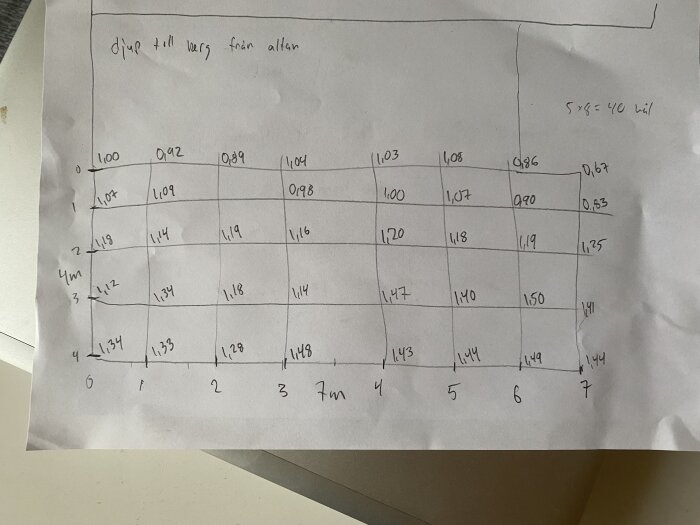 djup till berg från altan
5 x 8 = 40 hål
1,00 0,92 0,89 1,04 1,03 1,08 0,86 0,67
0
1,07 1,09 0,98 1,00 1,07 0,90 0,83
1
1,18 1,14 1,19 1,16 1,20 1,18 1,19 1,25
2
4m
1,12 1,34 1,18 1,14 1,47 1,40 1,50 1,41
3
1,34 1,33 1,28 1,48 1,43 1,44 1,49 1,44
4
0 1 2 3 7m 4 5 6 7